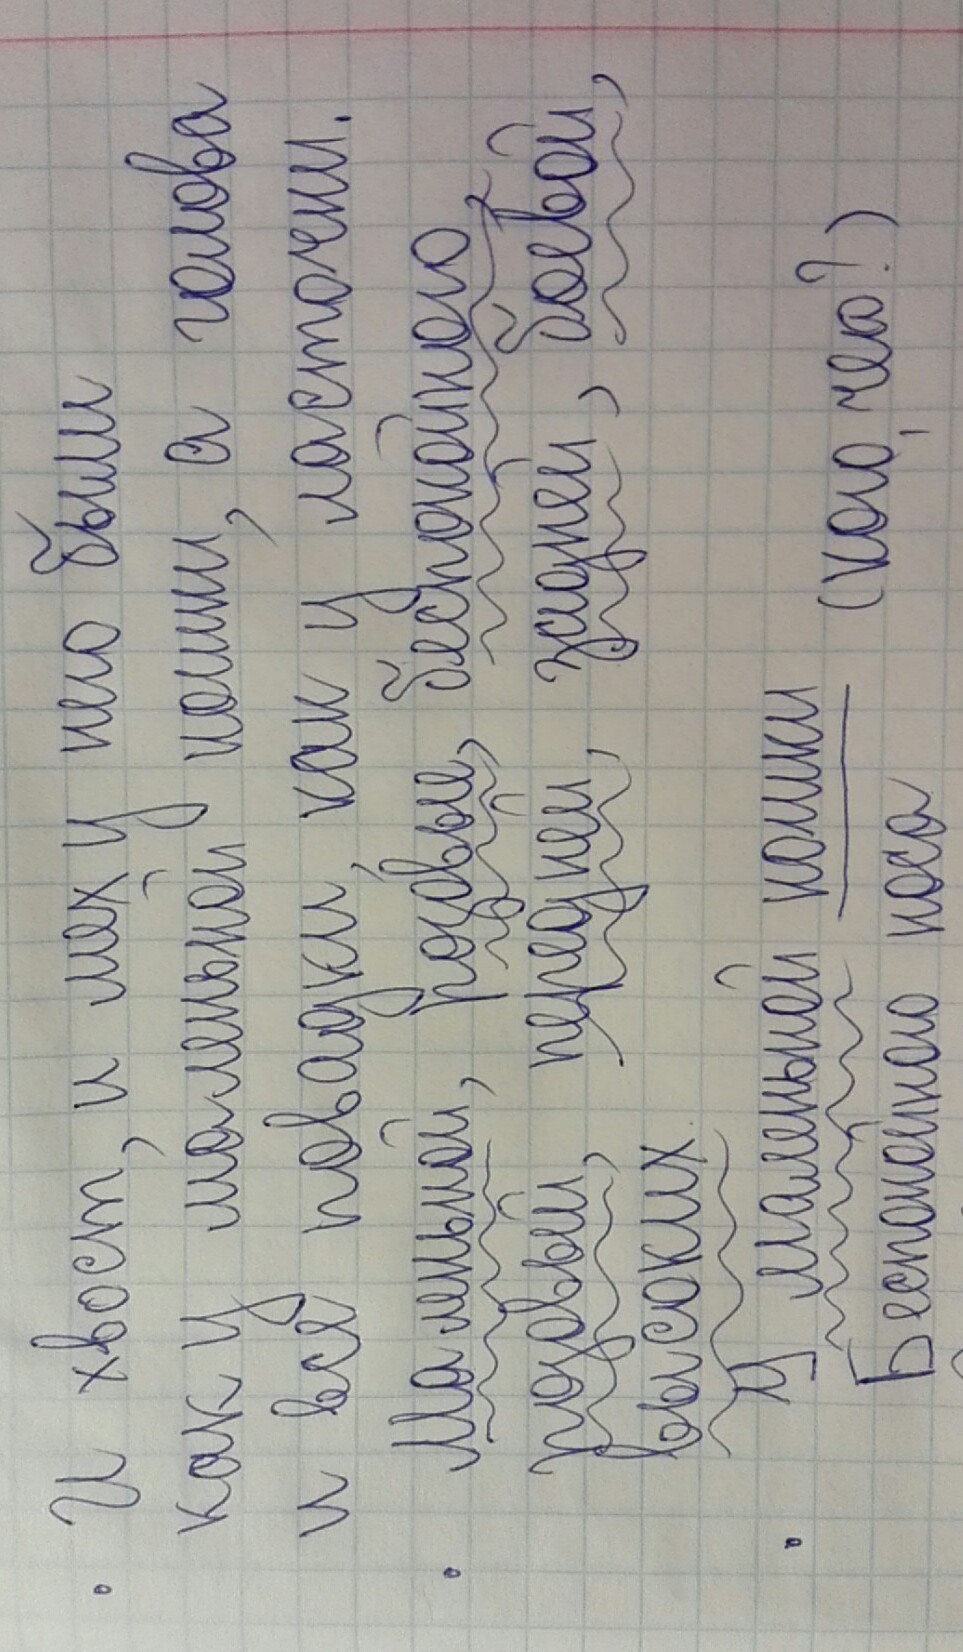 • И хвост, и мех у него были
как у маленькой кошки, а голова
и все повадки, как у ласточки.
• Маленькой, розовые, беспокойного
розовый, передней, задней, боевой,
высоких
• У маленькой кошки (кого, чего?)
Беспокойного носа